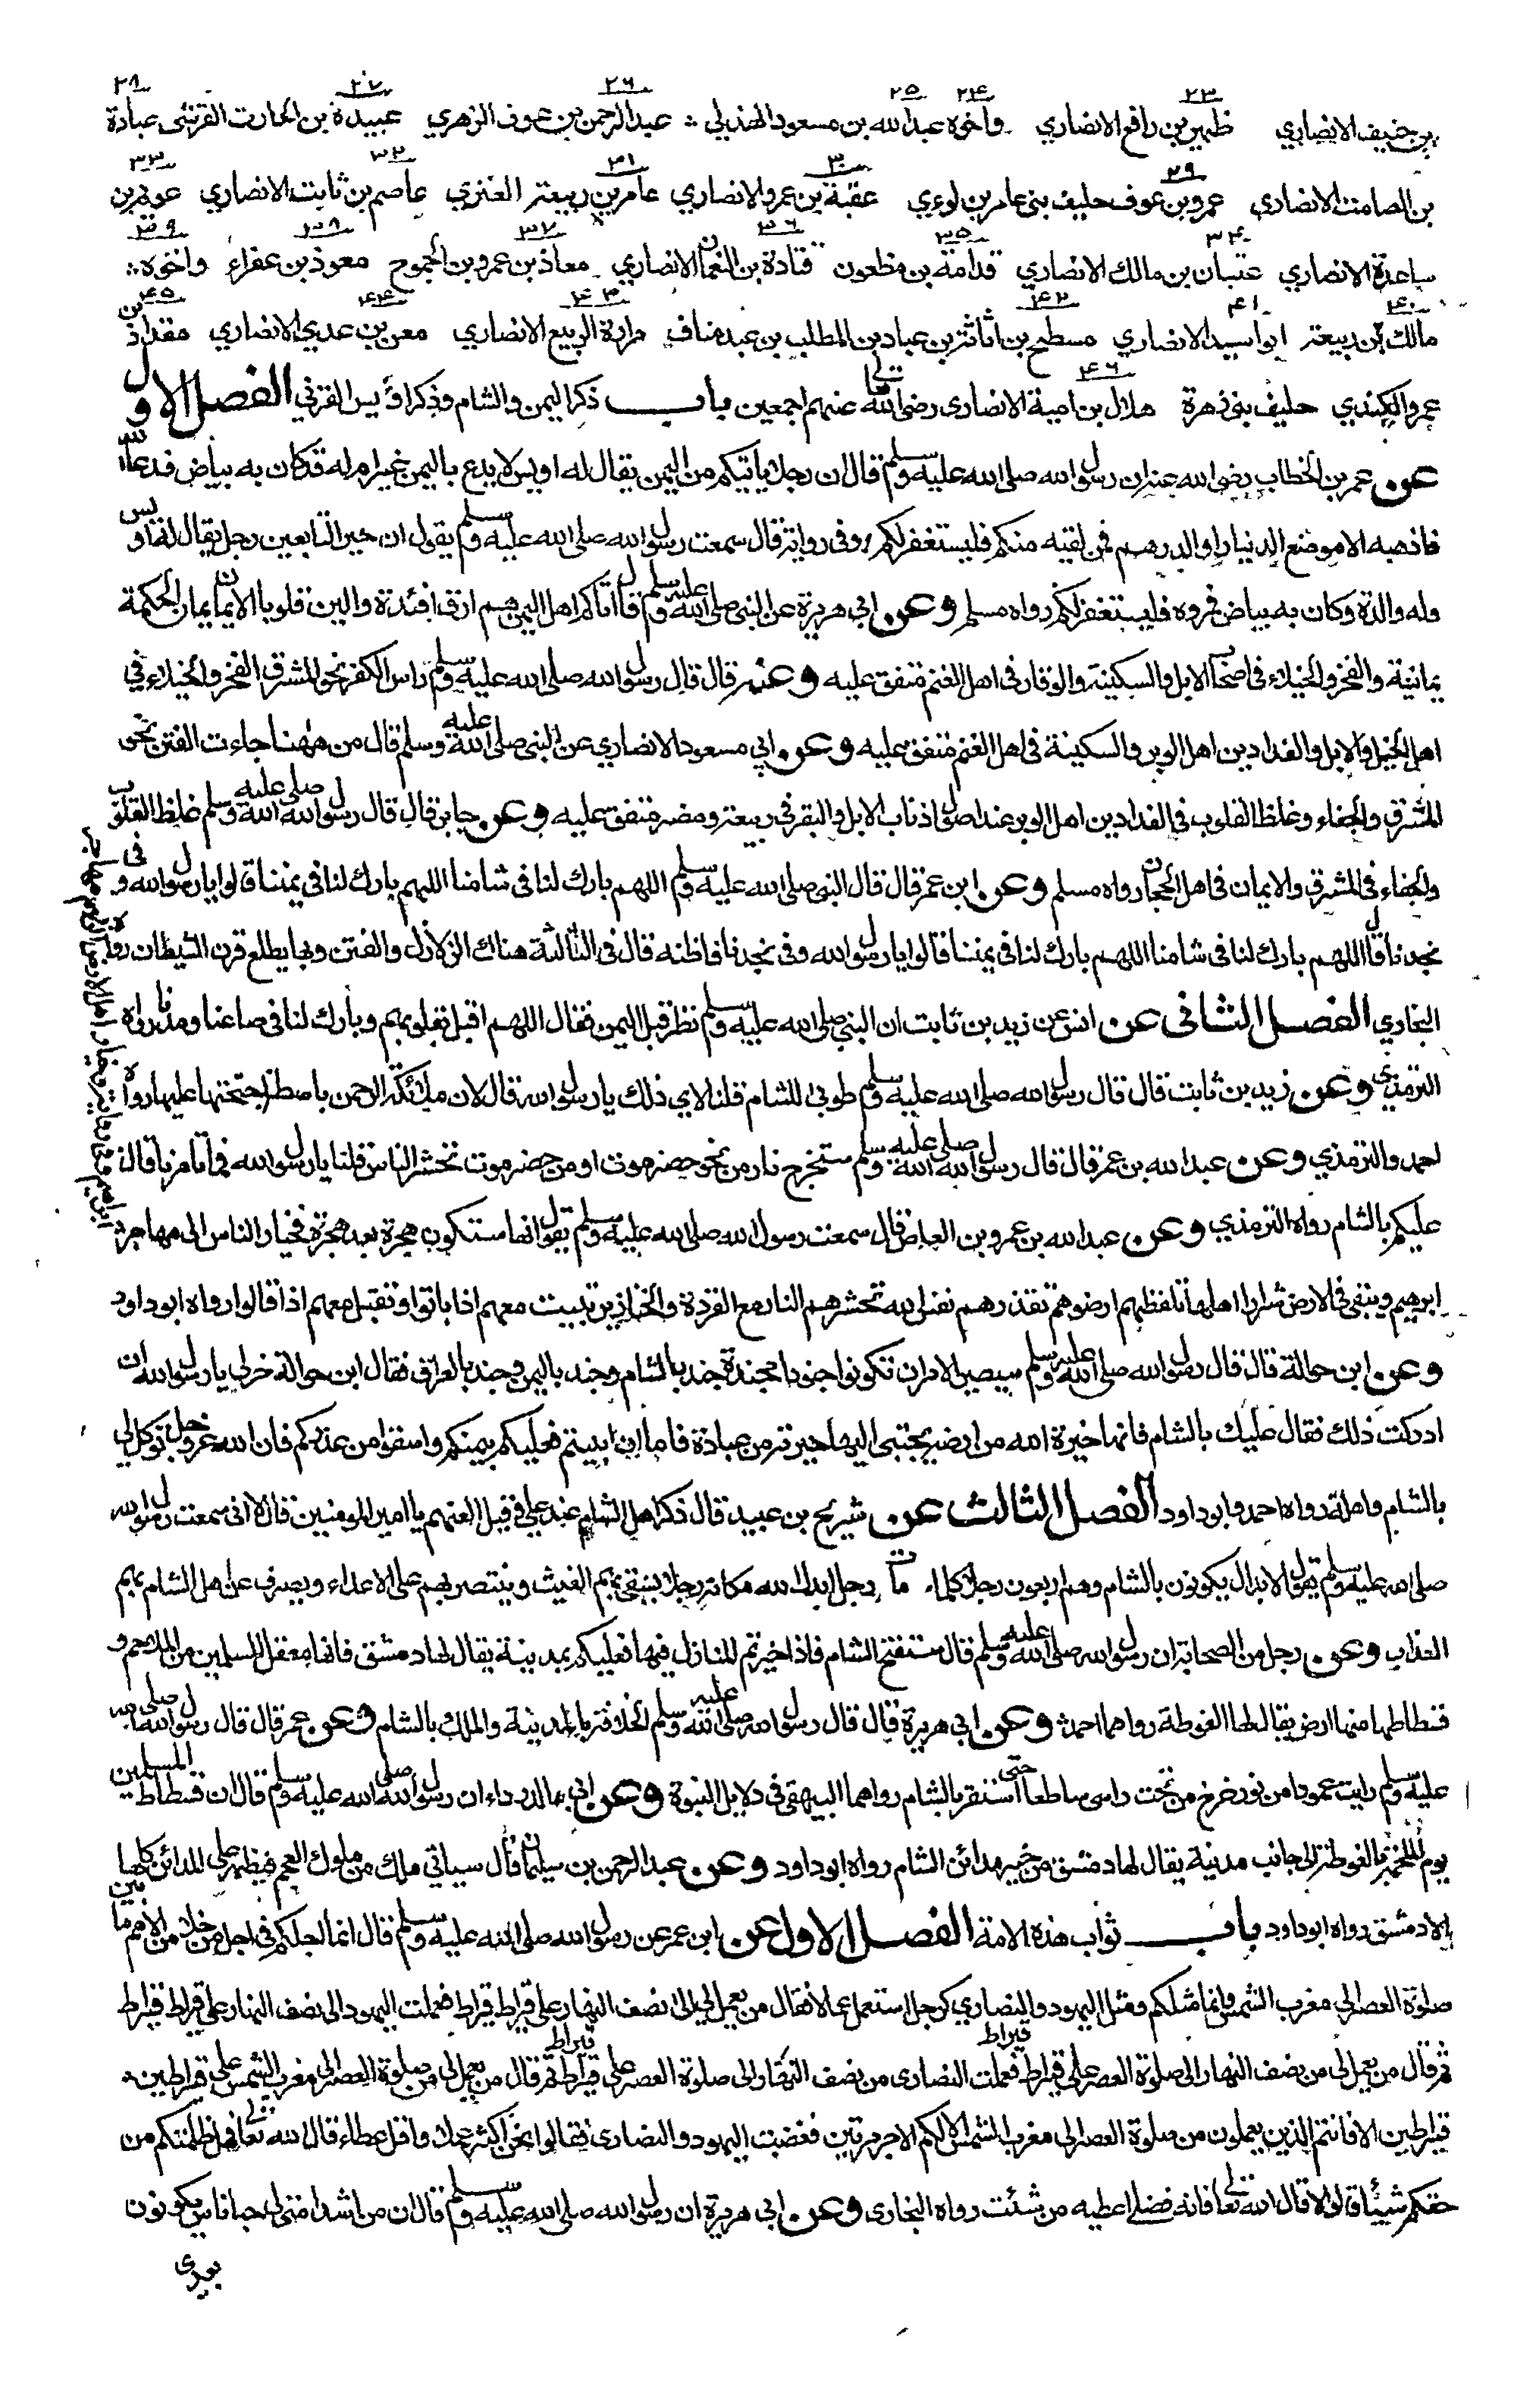 ٢٣ ٢٤ ٢٥ ٢٦ ٢٧ ٢٨
بن حنيف الانصاري ظهير بن رافع الانصاري واخوه عبد الله بن مسعود الهذلي عبد الرحمن بن عوف الزهري عبيدة بن الحارث القرشي عبادة
٢٩ ٣٠ ٣١ ٣٢ ٣٣
بن الصامت الانصاري عمرو بن عوف حليف بنى عامر بن لوءي عقبة بن عمرو الانصاري عامر بن ربيعة العنزي عاصم بن ثابت الانصاري عويم بن
٣٤ ٣٥ ٣٦ ٣٧ ٣٨ ٣٩
ساعدة الانصاري عتبان بن مالك الانصاري قدامة بن مظعون قتادة بن النعمان الانصاري معاذ بن عمرو بن الجموح معوذ بن عفراء واخوه
٤٠ ٤١ ٤٢ ٤٣ ٤٤ ٤٥
مالك بن ربيعة ابو اسيد الانصاري مسطح بن اثاثة بن عباد بن المطلب بن عبد مناف مرارة الربيع الانصاري معن بن عدي الانصاري مقداد بن
٤٦
عمرو الكندي حليف بنى زهرة هلال بن امية الانصارى رضى الله تعالى عنهم اجمعين باب ذكر اليمن والشام وذكر اويس القرني الفصل الاول
عن عمر بن الخطاب رضى الله عنه ان رسول الله صلى الله عليه وسلم قال ان رجلا ياتيكم من اليمن يقال له اويس لا يدع باليمن غير ام له قد كان به بياض فدعا الله
فاذهبه الا موضع الدينار او الدرهم فمن لقيه منكم فليستغفر لكم وفى رواية قال سمعت رسول الله صلى الله عليه وسلم يقول ان خير التابعين رجل يقال له اويس
وله والدة وكان به بياض فمروه فليستغفر لكم رواه مسلم وعن ابي هريرة عن النبى صلى الله عليه وسلم قال اتاكم اهل اليمن هم ارق افئدة والين قلوبا الايمان يمان والحكمة
يمانية والفخر والخيلاء فى اصحاب الابل والسكينة والوقار فى اهل الغنم متفق عليه وعنه قال قال رسول الله صلى الله عليه وسلم راس الكفر نحو المشرق والفخر والخيلاء في
اهل الخيل والابل والفدادين اهل الوبر والسكينة فى اهل الغنم متفق عليه وعن ابي مسعود الانصاري عن النبى صلى الله عليه وسلم قال من ههنا جاءت الفتن نحو
المشرق والجفاء وغلظ القلوب في الفدادين اهل الوبر عند اصول اذناب الابل والبقر في ربيعة ومضر متفق عليه وعن جابر قال قال رسول الله صلى الله عليه وسلم غلظ القلوب
والجفاء في المشرق والايمان فى اهل الحجاز رواه مسلم وعن ابن عمر قال قال النبى صلى الله عليه وسلم اللهم بارك لنا فى شامنا اللهم بارك لنا في يمننا قالوا يا رسول الله وفى
نجدنا قال اللهم بارك لنا فى شامنا اللهم بارك لنا فى يمننا قالوا يا رسول الله وفى نجدنا فاظنه قال فى الثالثة هناك الزلازل والفتن وبها يطلع قرن الشيطان رواه
البخاري الفصل الثانى عن انس عن زيد بن ثابت ان النبي صلى الله عليه وسلم نظر قبل اليمن فقال اللهم اقبل بقلوبهم وبارك لنا فى صاعنا ومدنا رواه
الترمذي وعن زيد بن ثابت قال قال رسول الله صلى الله عليه وسلم طوبى للشام قلنا لاي ذلك يا رسول الله قال لان ملئكة الرحمن باسطة اجنحتها عليها رواه
احمد والترمذي وعن عبد الله بن عمر قال قال رسول الله صلى الله عليه وسلم ستخرج نار من نحو حضرموت او من حضرموت تحشر الناس قلنا يا رسول الله فما تامرنا قال
عليكم بالشام رواه الترمذي وعن عبد الله بن عمرو بن العاص قال سمعت رسول الله صلى الله عليه وسلم يقول انها ستكون هجرة بعد هجرة فخيار الناس الى مهاجر
ابرهيم ويبقى فى الارض شرار اهلها تلفظهم ارضوهم تقذرهم نفس الله تحشرهم النار مع القردة والخنازير تبيت معهم اذا باتوا وتقيل معهم اذا قالوا رواه ابو داود
وعن ابن حوالة قال قال رسول الله صلى الله عليه وسلم سيصير الامر ان تكونوا جنودا مجندة جند بالشام وجند باليمن وجند بالعراق فقال ابن حوالة خر لي يا رسول الله ان
ادركت ذلك فقال عليك بالشام فانها خيرة الله من ارضه يجتبى اليها خيرته من عباده فاما ان ابيتم فعليكم بيمنكم واسقوا من غدركم فان الله عز وجل توكل لي
بالشام واهله رواه احمد وابو داود الفصل الثالث عن شريح بن عبيد قال ذكر اهل الشام عند علي وقيل العنهم يا امير المومنين قال لا انى سمعت رسول الله
صلى الله عليه وسلم يقول الابدال يكونون بالشام وهم اربعون رجلا كلما مات رجل ابدل الله مكانه رجلا يسقى بهم الغيث وينتصر بهم على الاعداء ويصرف عن اهل الشام بهم
العذاب وعن رجل من الصحابة ان رسول الله صلى الله عليه وسلم قال ستفتح الشام فاذا خيرتم المنازل فيها فعليكم بمدينة يقال لها دمشق فانها معقل المسلمين من الملاحم و
فسطاطها منها ارض يقال لها الغوطة رواهما احمد وعن ابي هريرة قال قال رسول الله صلى الله عليه وسلم الخلافة بالمدينة والملك بالشام وعن عمر قال قال رسول الله صلى الله
عليه وسلم رايت عمودا من نور خرج من تحت راسى ساطعا حتى استقر بالشام رواهما البيهقى فى دلايل النبوة وعن ابي الدرداء ان رسول الله صلى الله عليه وسلم قال ان فسطاط المسلمين
يوم الملحمة بالغوطة الى جانب مدينة يقال لها دمشق من خير مدائن الشام رواه ابو داود وعن عبد الرحمن بن سليمان قال سياتي ملك من ملوك العجم فيظهر على المدائن كلها
الا دمشق رواه ابو داود باب ثواب هذه الامة الفصل الاول عن ابن عمر عن رسول الله صلى الله عليه وسلم قال انما اجلكم فى اجل من خلا من الامم ما بين
صلوة العصر الى مغرب الشمس وانما مثلكم ومثل اليهود والنصاري كرجل استعمل عمالا فقال من يعمل لي الى نصف النهار على قيراط قيراط فعملت اليهود الى نصف النهار على قيراط قيراط
ثم قال من يعمل لى من نصف النهار الى صلوة العصر على قيراط قيراط فعملت النصارى من نصف النهار الى صلوة العصر على قيراط قيراط ثم قال من يعمل لى من صلوة العصر الى مغرب الشمس على قيراطين
قيراطين الا فانتم الذين يعملون من صلوة العصر الى مغرب الشمس الا لكم الاجر مرتين فغضبت اليهود والنصارى فقالوا نحن اكثر عملا واقل عطاء قال الله تعالى فهل ظلمتكم من
حقكم شيئا قالوا لا قال الله تعالى فانه فضلى اعطيه من شئت رواه البخارى وعن ابى هريرة ان رسول الله صلى الله عليه وسلم قال ان من اشد امتى لى حبا ناس يكونون
بعدى